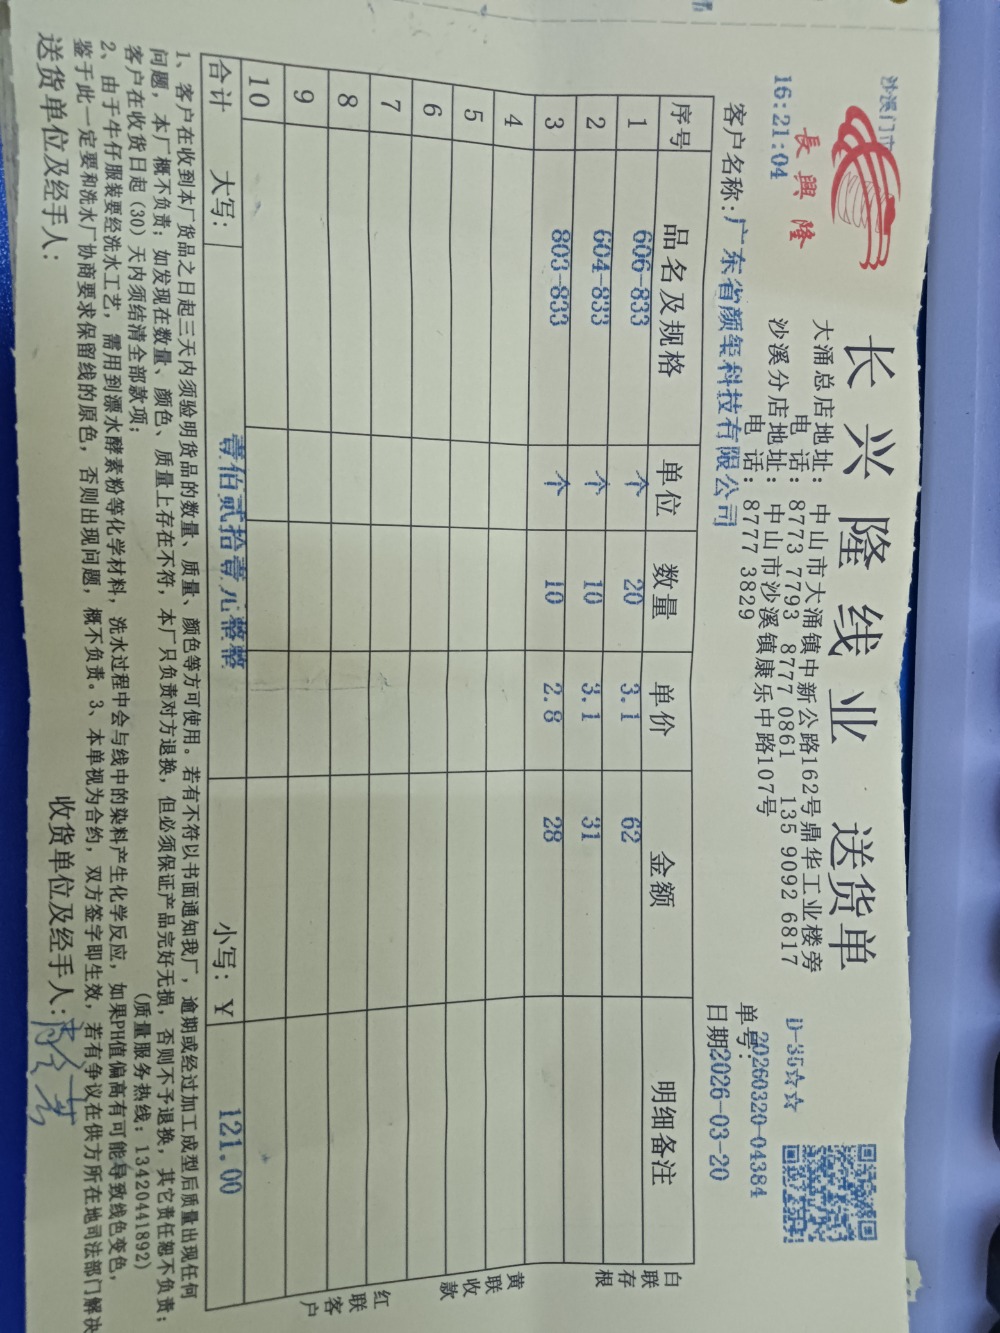 沙溪门市
16:21:04
長興隆
长兴隆线业 送货单
大涌总店地址：中山市大涌镇中新公路162号鼎华工业楼旁
电 话：8773 7793 8777 0861 135 9092 6817
沙溪分店地址：中山市沙溪镇康乐中路107号
电 话：8777 3829
D-35☆☆
单号：20260320-04384
客户名称：广东省颜玺科技有限公司
日期2026-03-20
序号 品名及规格 单位 数量 单价 金额 明细备注
1 606-833 个 20 3.1 62
2 604-833 个 10 3.1 31
3 803-833 个 10 2.8 28
4
5
6
7
8
9
10
合计 大写： 壹佰贰拾壹元整整 小写：¥ 121.00
白联存根
黄联收款
红联客户
1、客户在收到本厂货品之日起三天内须验明货品的数量、质量、颜色等方可使用。若有不符以书面通知我厂，逾期或经过加工成型后质量出现任何
问题，本厂概不负责；如发现在数量、颜色、质量上存在不符，本厂只负责对方退换，但必须保证产品完好无损，否则不予退换，其它责任恕不负责；
客户在收货日起(30)天内须结清全部款项； (质量服务热线：13420441892)
2、由于牛仔服装要经洗水工艺，需用到漂水酵素粉等化学材料，洗水过程中会与线中的染料产生化学反应，如果PH值偏高有可能导致线色变色，
鉴于此一定要和洗水厂协商要求保留线的原色，否则出现问题，概不负责。3、本单视为合约，双方签字即生效，若有争议在供方所在地司法部门解决
送货单位及经手人： 收货单位及经手人：